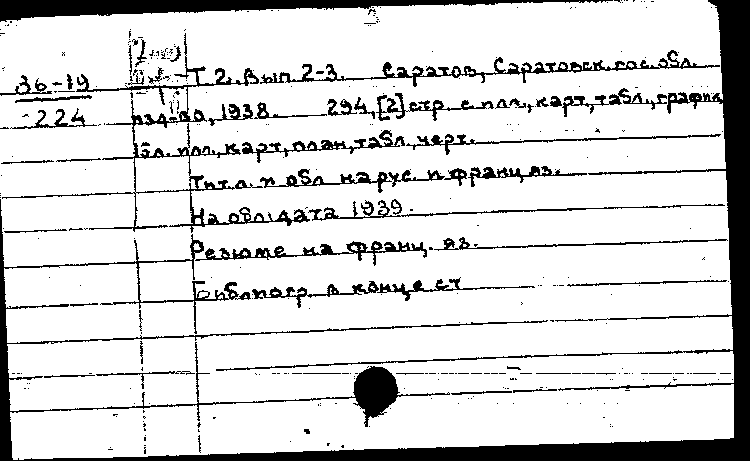 36-19
224
Т. 2. Вып. 2-3. Саратов, Саратовск. гос. обл.
изд-во, 1938. 294, [2] стр. с илл., карт, табл., график,
15 л. илл., карт, план, табл., черт.
Тит. л. и обл на рус. и франц яз.
На обл: дата 1939.
Резюме на франц. яз.
Библиогр. в конце ст